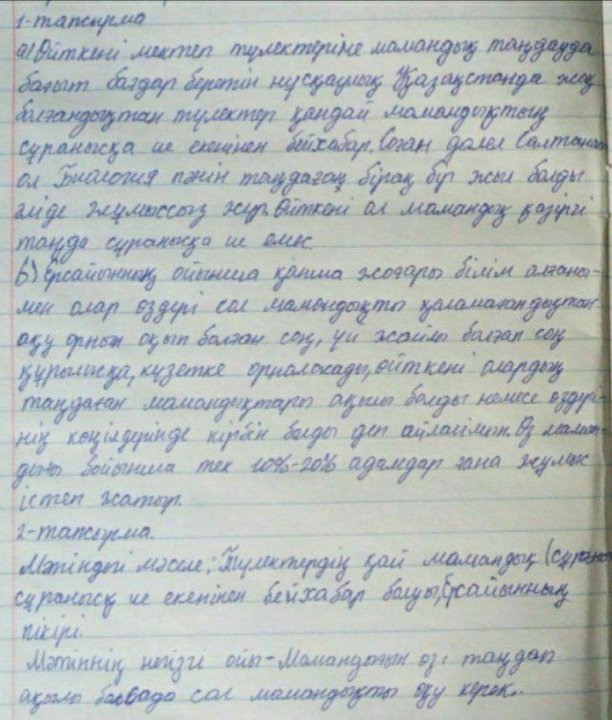 1-тапсырма
а) Өйткені мектеп түлектеріне мамандық таңдауда
бағыт бағдар беретін нұсқаулық Қазақстанда жоқ
болғандықтан түлектер қандай мамандықтың
сұранысқа ие екенінен бейхабар. Оған дәлел Салтанат
ол Биология пәнін таңдаған, бірақ бір жыл болды
әліде жұмыссыз жүр. Өйткені ол мамандық қазіргі
таңда сұранысқа ие емес
б) Ерсайынның ойынша қанша жоғары білім алғаны-
мен олар өздері сол мамандықты қаламағандықтан
оқу орнын оқып болған соң, үй жайлы болған соң
құрылысқа, күзетке орналасады, өйткені олардың
таңдаған мамандықтары ақылы болды немесе өздері-
нің көңілдерінде кірбің болды деп ойлаймын. Өз маман-
дығы бойынша тек 10%-20% адамдар ғана жұмыс
істеп жатыр.
2-тапсырма.
Мәтіндегі мәселе: Түлектердің қай мамандық
сұранысқ ие екенінен бейхабар болуы, Ерсайынның
пікірі.
Мәтіннің негізгі ойы - Мамандығын өзі таңдап
ақылы болсада сол мамандықты оқу керек.